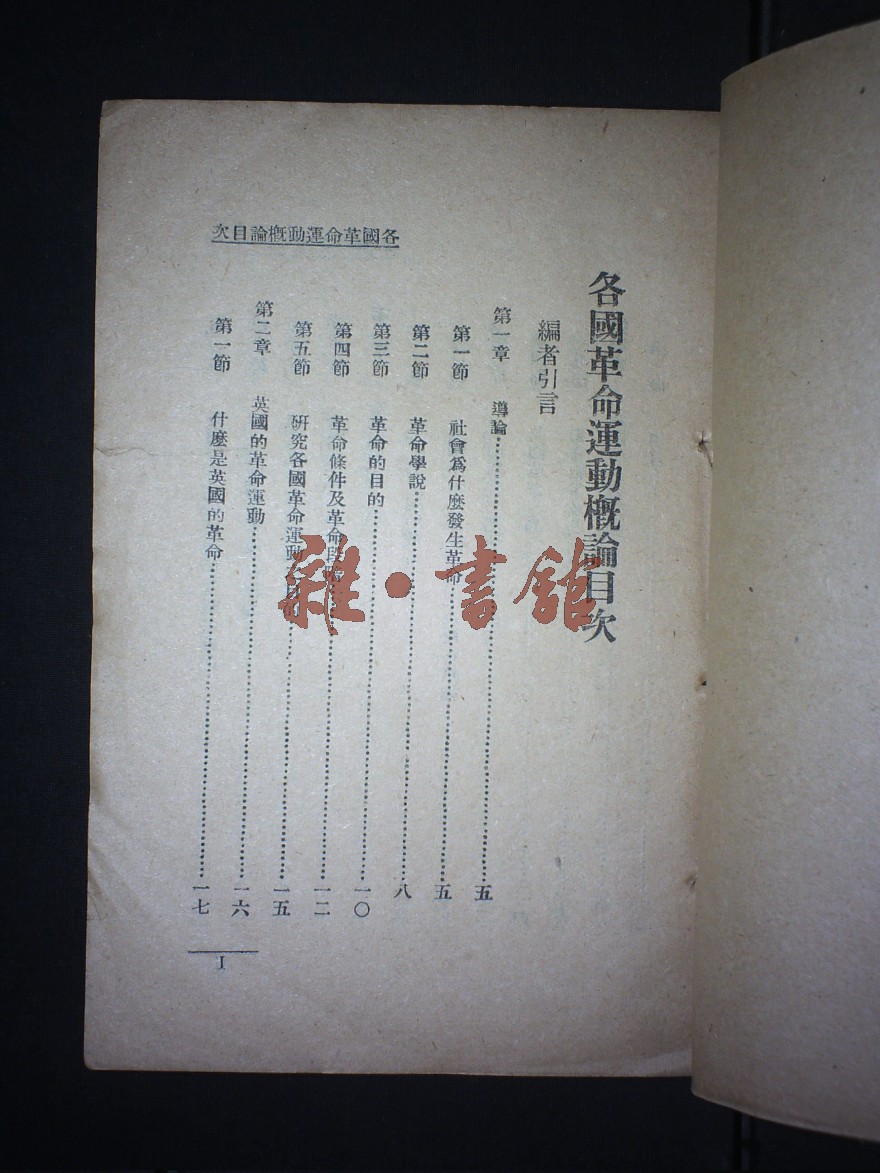 各國革命運動概論目次
各國革命運動概論目次
編者引言
第一章 導論 五
第一節 社會爲什麼發生革命 五
第二節 革命學說 八
第三節 革命的目的 一〇
第四節 革命條件及革命段階 一二
第五節 研究各國革命運動 目的 一五
第二章 英國的革命運動 一六
第一節 什麼是英國的革命 一七
I
雜·書館